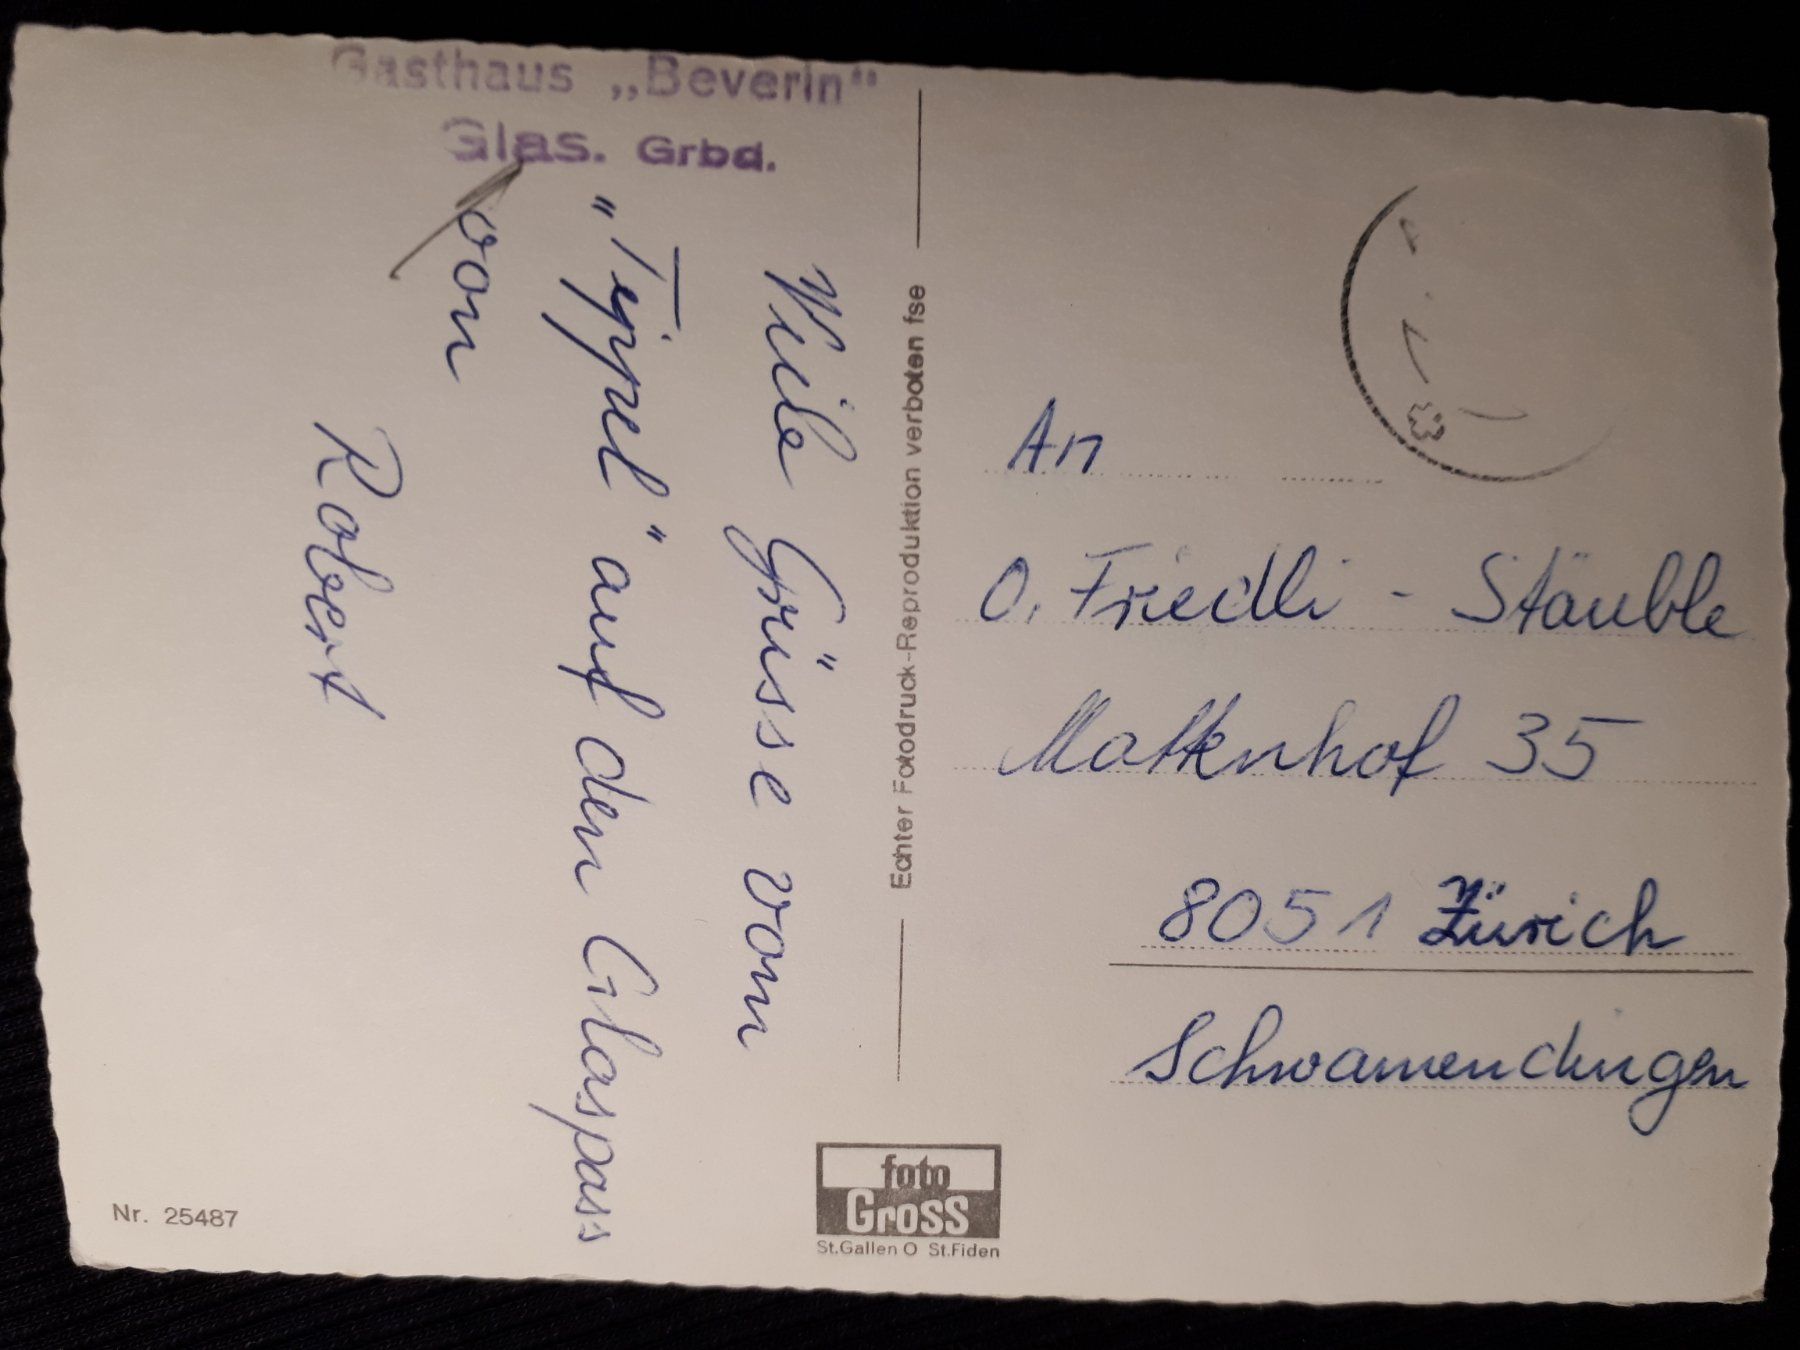 Gasthaus „Beverin“
Glas. Grbd.
Viele Grüsse vom
"Teippel" auf dem Glaspass
von
Robert
Nr. 25487
Echter Fotodruck-Reproduktion verboten fse
foto
Gross
St.Gallen O St.Fiden
An
O. Friedli - Stäuble
Mattenhof 35
8051 Zürich
Schwamendingen